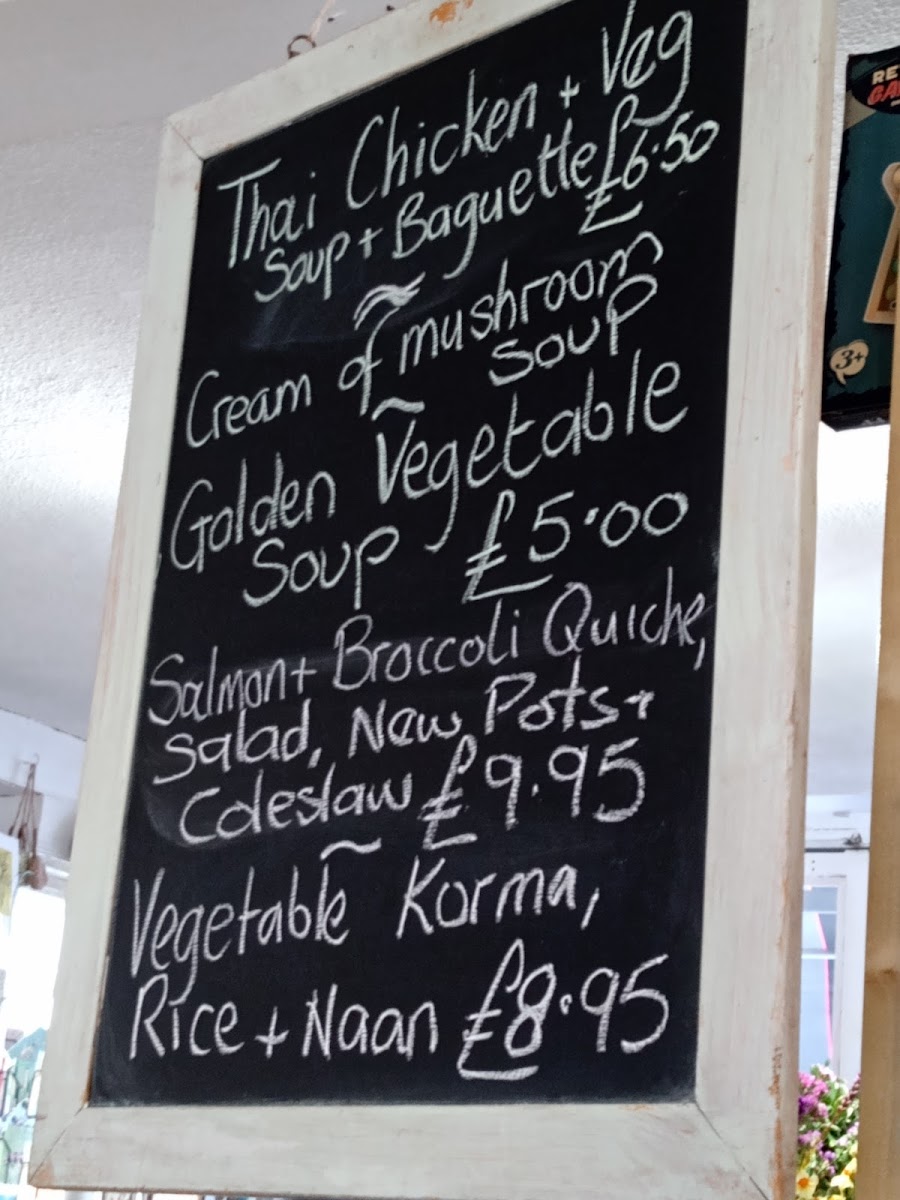 Thai Chicken + Veg
Soup + Baguette £6.50
~
Cream of mushroom
soup
~
Golden Vegetable
Soup £5.00
Salmon + Broccoli Quiche,
Salad, New Pots +
Coleslaw £9.95
~
Vegetable Korma,
Rice + Naan £8.95
RE
GA
3+